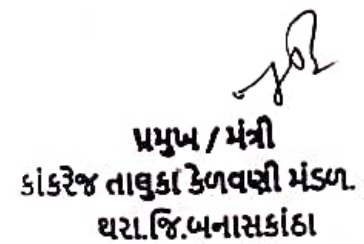 પ્રમુખ / મંત્રી
કાંકરેજ તાલુકા કેળવણી મંડળ.
થરા.જિ.બનાસકાંઠા